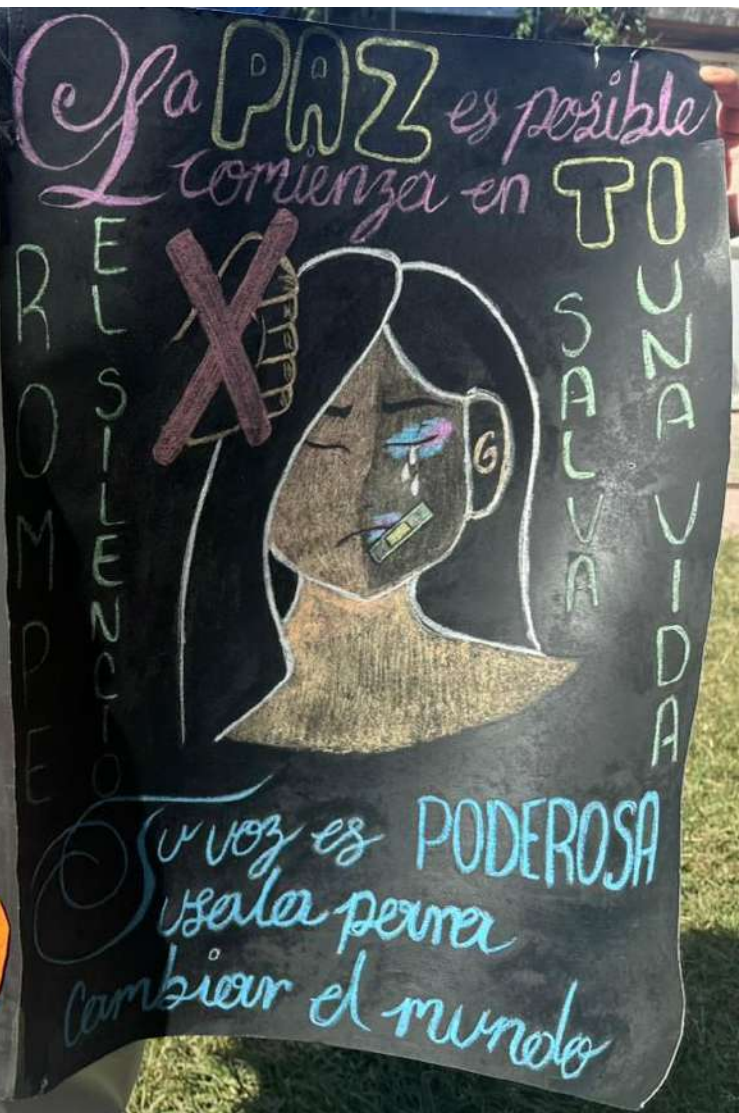 La PAZ es posible
comienza en TI
ROMPE
EL SILENCIO
SALVA
UNA VIDA
Tu voz es PODEROSA
usala para
cambiar el mundo